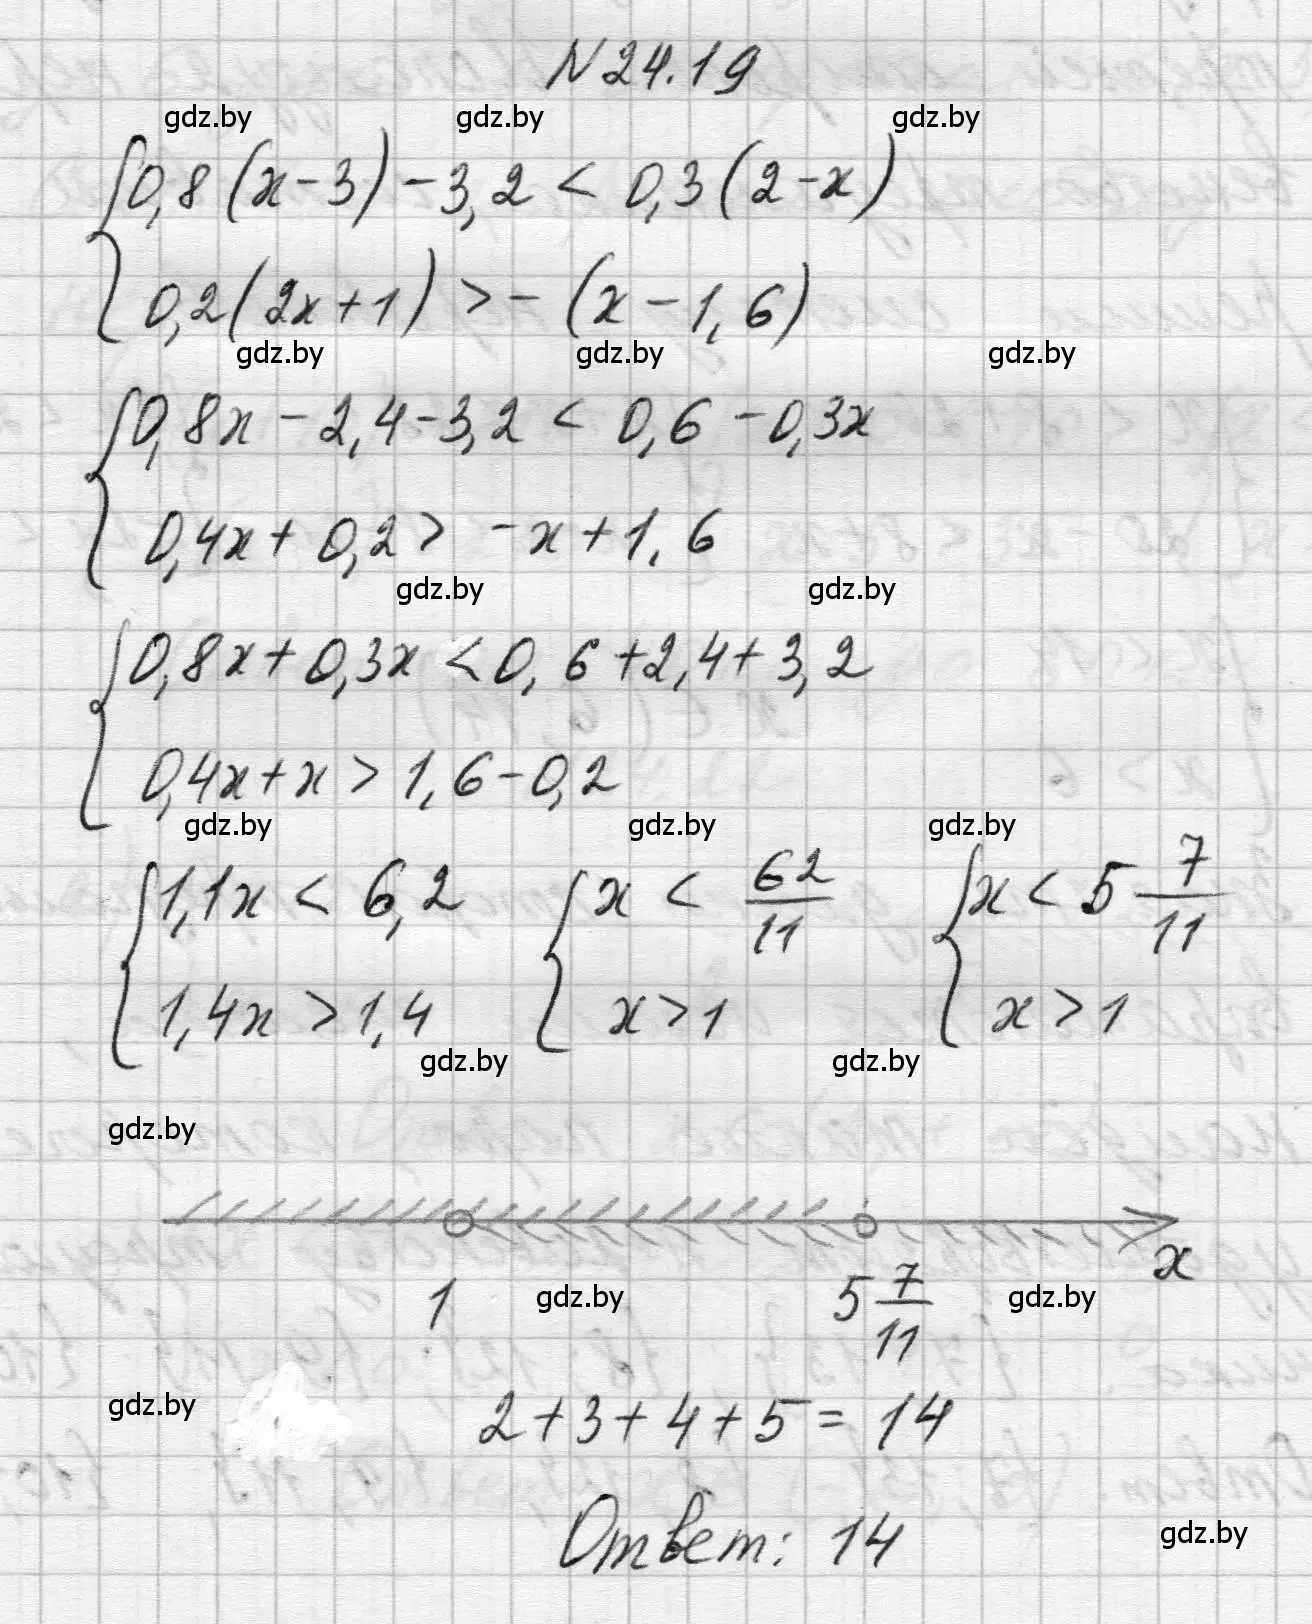 N 24.19
gdz.by gdz.by gdz.by
{ 0,8(x-3)-3,2 < 0,3(2-x)
0,2(2x+1) > -(x-1,6)
gdz.by gdz.by gdz.by
{ 0,8x-2,4-3,2 < 0,6-0,3x
0,4x+0,2 > -x+1,6
gdz.by gdz.by
{ 0,8x+0,3x < 0,6+2,4+3,2
0,4x+x > 1,6-0,2
gdz.by gdz.by gdz.by
{ 1,1x < 6,2 { x < 62/11 { x < 5 7/11
1,4x > 1,4 x > 1 x > 1
gdz.by gdz.by
gdz.by
x
1 gdz.by 5 7/11 gdz.by
gdz.by 2+3+4+5 = 14
Ответ: 14 gdz.by